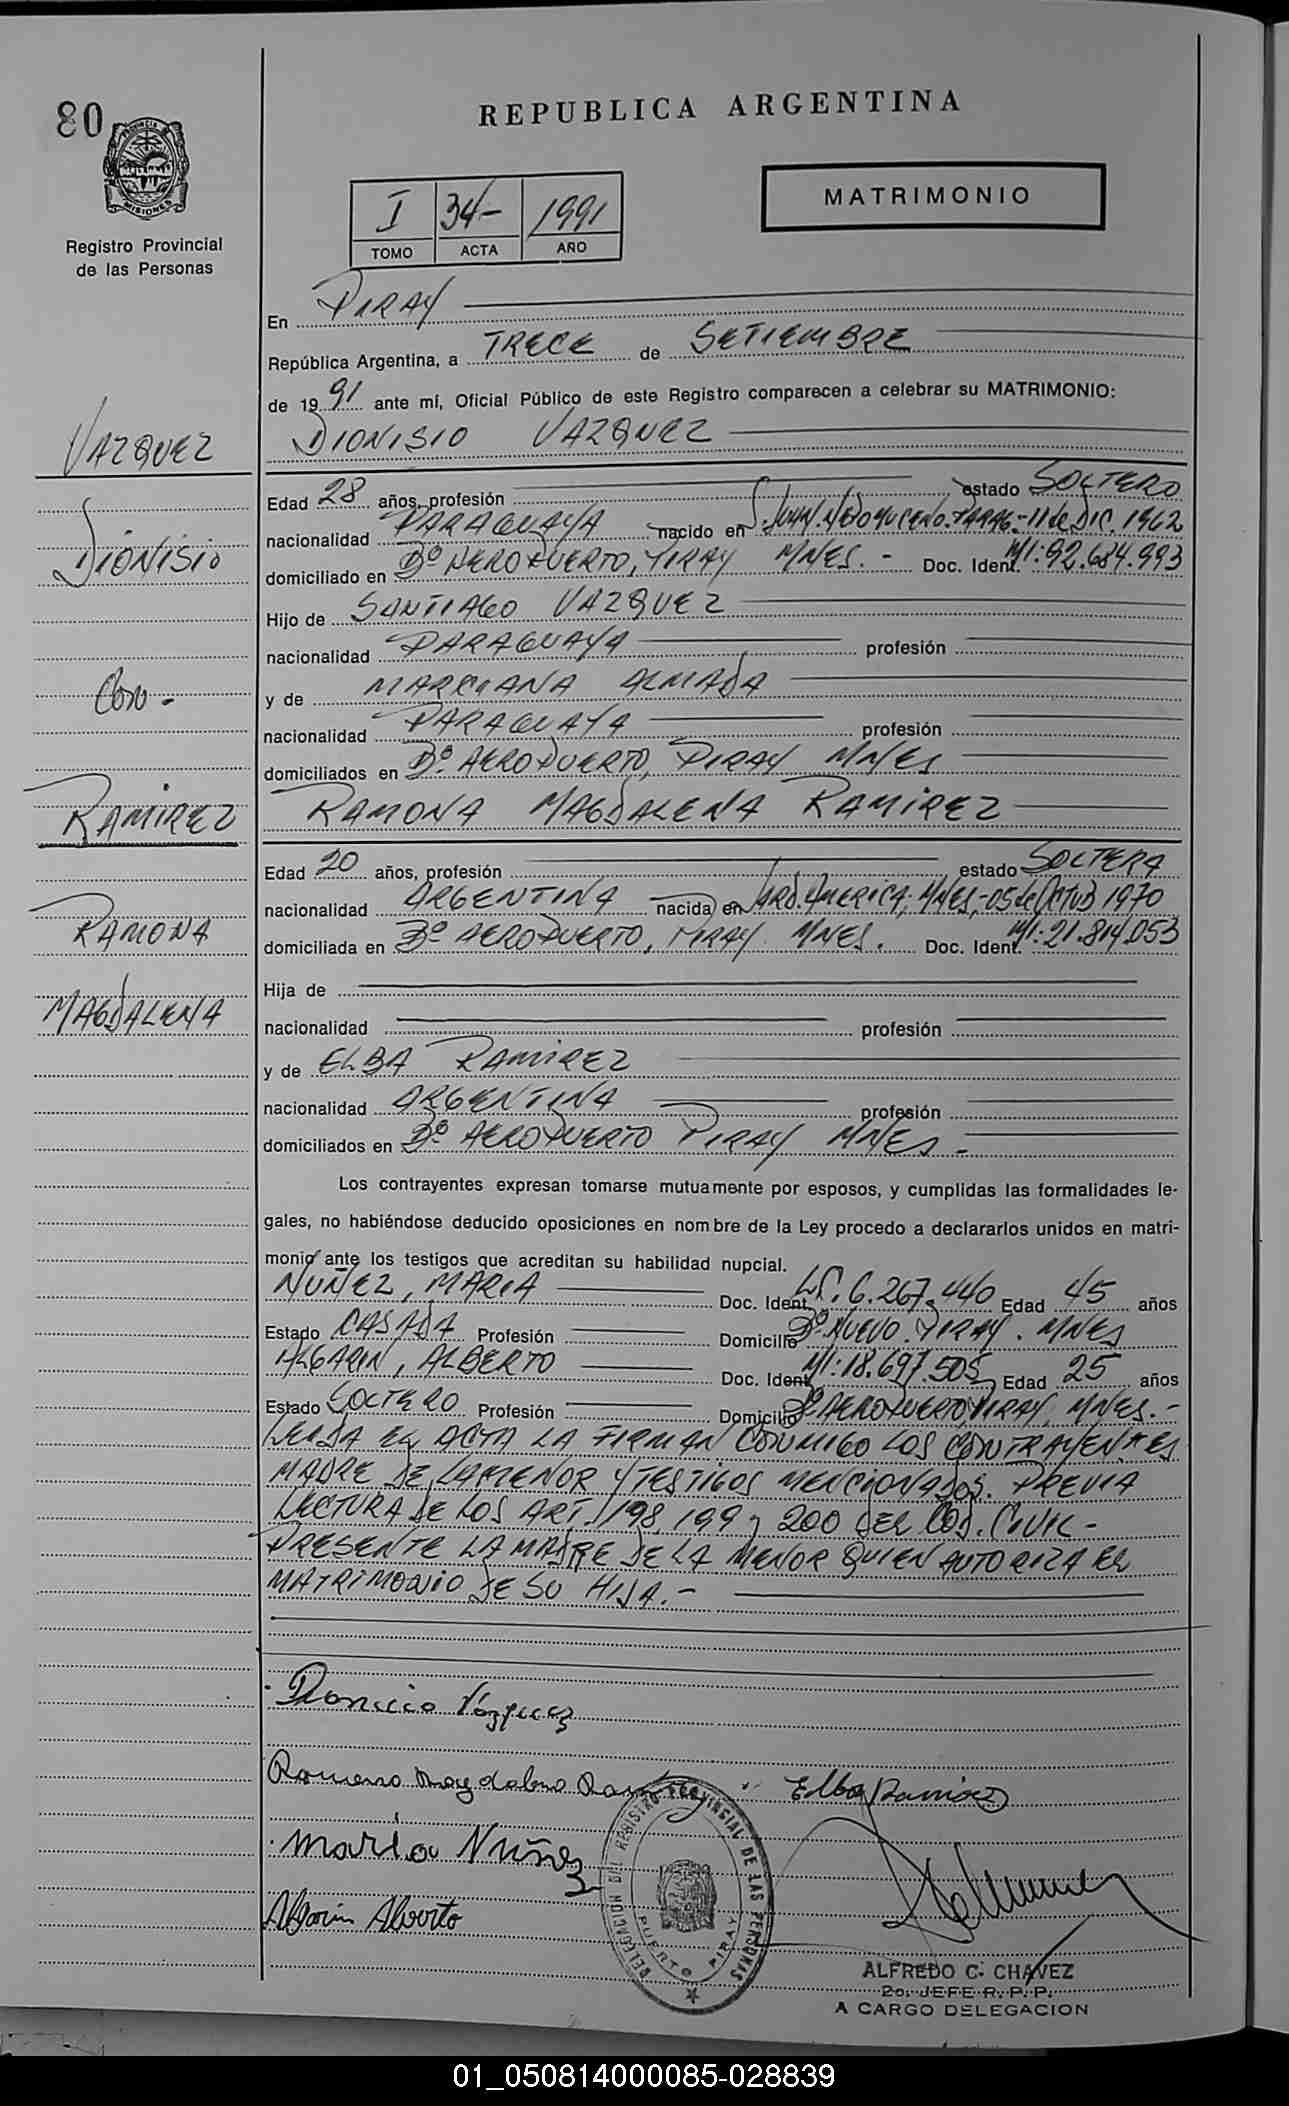 80
REPUBLICA ARGENTINA
PROVINCIA DE MISIONES
MATRIMONIO
I 34- 1991
TOMO ACTA AÑO
Registro Provincial
de las Personas
En PIRAY
República Argentina, a TRECE de SETIEMBRE
de 1991 ante mí, Oficial Público de este Registro comparecen a celebrar su MATRIMONIO:
VAZQUEZ
DIONISIO VAZQUEZ
Edad 28 años, profesión estado SOLTERO
nacionalidad PARAGUAYA nacido en S. JUAN. NEPOMUCENO. PARAG.-11 de DIC. 1962
DIONISIO
domiciliado en Bº AEROPUERTO, PIRAY MNES.- Doc. Ident. MI: 92.684.993
Hijo de SANTIAGO VAZQUEZ
nacionalidad PARAGUAYA profesión
Con -
y de MARCIANA ALMADA
nacionalidad PARAGUAYA profesión
domiciliados en Bº. AEROPUERTO, PIRAY MNES
RAMIREZ
RAMONA MAGDALENA RAMIREZ
Edad 20 años, profesión estado SOLTERA
nacionalidad ARGENTINA nacida en JARD. AMERICA, MNES,-05 de OCTUB 1970
RAMONA
domiciliada en Bº AEROPUERTO, PIRAY MNES. Doc. Ident. MI: 21.814.053
Hija de
MAGDALENA
nacionalidad profesión
y de ELBA RAMIREZ
nacionalidad ARGENTINA profesión
domiciliados en Bº AEROPUERTO PIRAY MNES-
Los contrayentes expresan tomarse mutuamente por esposos, y cumplidas las formalidades le-
gales, no habiéndose deducido oposiciones en nombre de la Ley procedo a declararlos unidos en matri-
monio ante los testigos que acreditan su habilidad nupcial.
NUÑEZ, MARIA Doc. Ident. LC. 6.267.440 Edad 45 años
Estado CASADA Profesión Domicilio Bº. NUEVO. PIRAY. MNES
ALGARIN, ALBERTO Doc. Ident. MI: 18.697.505 Edad 25 años
Estado SOLTERO Profesión Domicilio Bº AEROPUERTO PIRAY, MNES.-
LEIDA EL ACTA LA FIRMAN CONMIGO LOS CONTRAYENTES
MADRE DE LA MENOR Y TESTIGOS MENCIONADOS. PREVIA
LECTURA DE LOS ART. 198, 199 y 200 DEL COD. CIVIL-
PRESENTE LA MADRE DE LA MENOR QUIEN AUTORIZA EL
MATRIMONIO DE SU HIJA.-
Dionicio Vázquez
Ramona Magdalena Ramirez Elba Ramirez
María Nuñez
Algarin Alberto
DELEGACION DEL REGISTRO PROVINCIAL DE LAS PERSONAS
PUERTO PIRAY
ALFREDO C. CHAVEZ
2o. JEFE R. P. P.
A CARGO DELEGACION
01_050814000085-028839